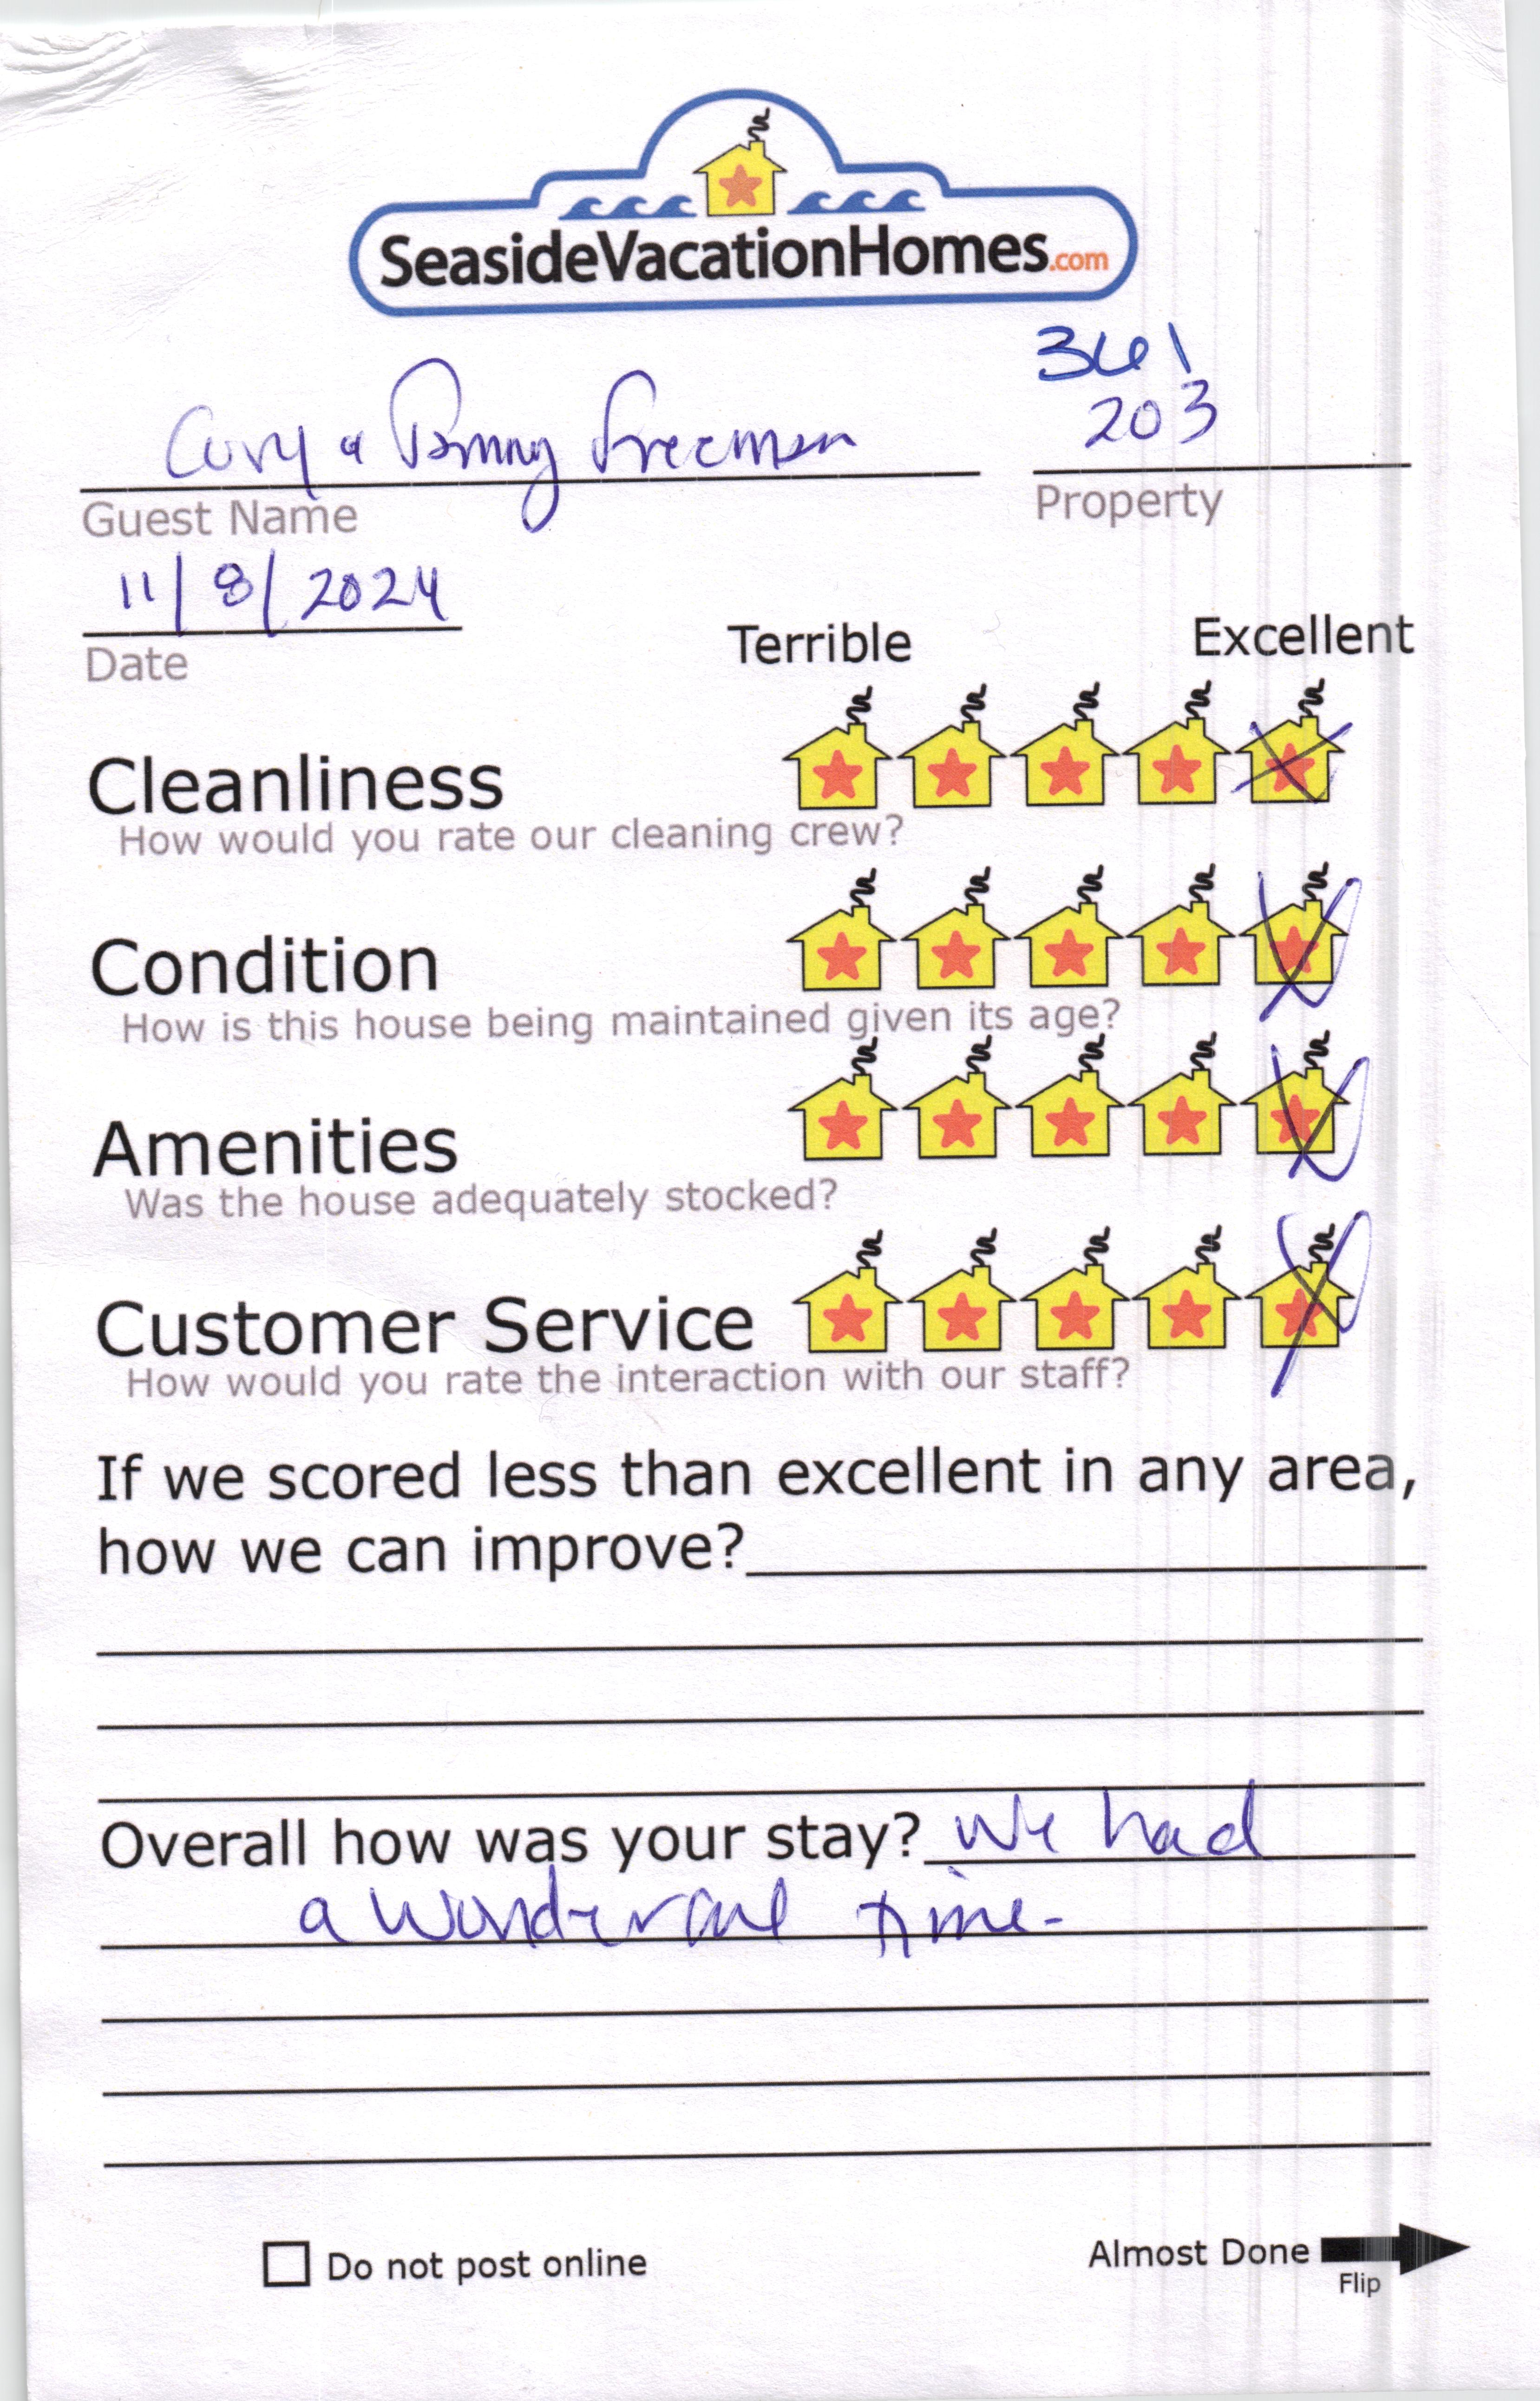 SeasideVacationHomes.com
361
Cory & Penny Freeman 203
Guest Name Property
11/8/2024
Date
Terrible Excellent
Cleanliness
How would you rate our cleaning crew?
Condition
How is this house being maintained given its age?
Amenities
Was the house adequately stocked?
Customer Service
How would you rate the interaction with our staff?
If we scored less than excellent in any area,
how we can improve?
Overall how was your stay? We had
a wonderful time.
Do not post online
Almost Done
Flip